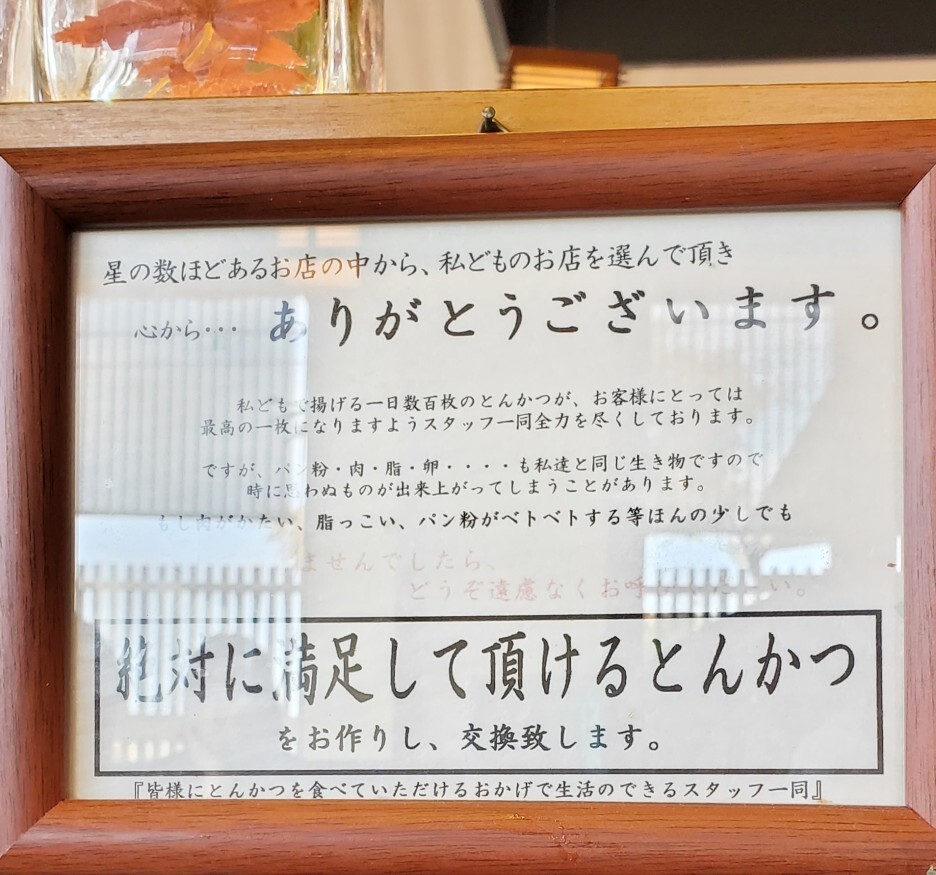 星の数ほどあるお店の中から、私どものお店を選んで頂き
心から・・・ ありがとうございます。
私どもで揚げる一日数百枚のとんかつが、お客様にとっては
最高の一枚になりますようスタッフ一同全力を尽くしております。
ですが、パン粉・肉・脂・卵・・・・も私達と同じ生き物ですので
時に思わぬものが出来上がってしまうことがあります。
もし肉がかたい、脂っこい、パン粉がベトベトする等ほんの少しでも
ませんでしたら、
どうぞ遠慮なくお呼い。
絶対に満足して頂けるとんかつ
をお作りし、交換致します。
『皆様にとんかつを食べていただけるおかげで生活のできるスタッフ一同』